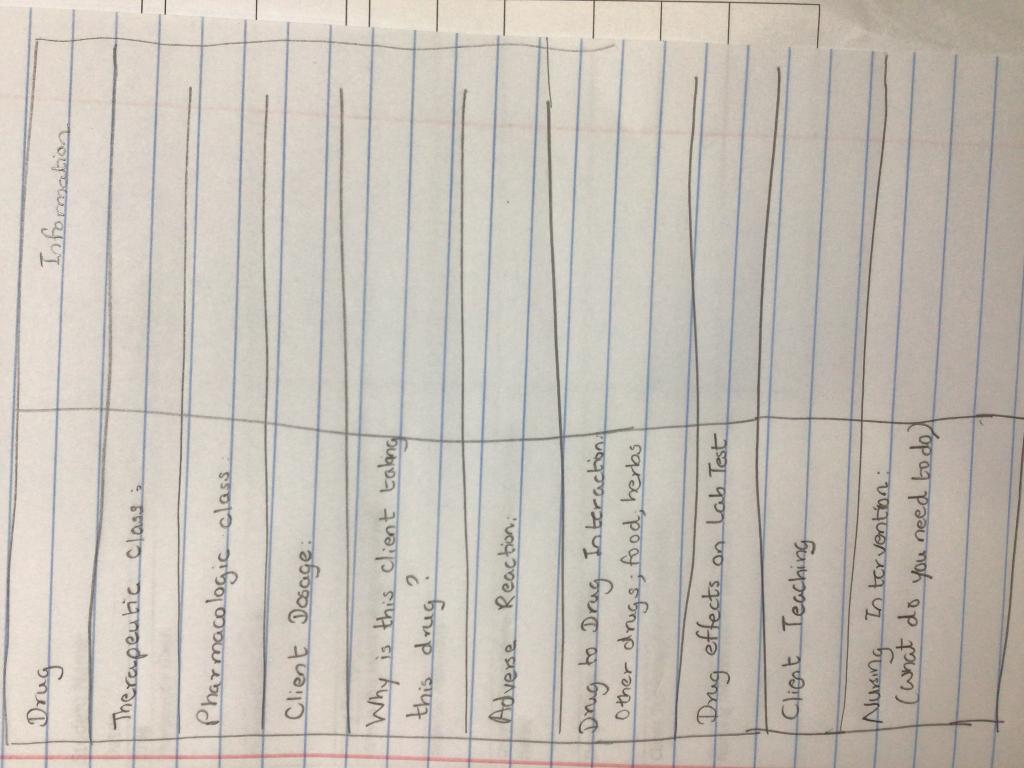 Drug
Information
Therapeutic class:
Pharmacologic class:
Client Dosage:
Why is this client taking
this drug?
Adverse Reaction:
Drug to Drug Interaction:
Other drugs, food, herbs
Drug effects on Lab Test
Client Teaching
Nursing Intervention:
(what do you need to do)